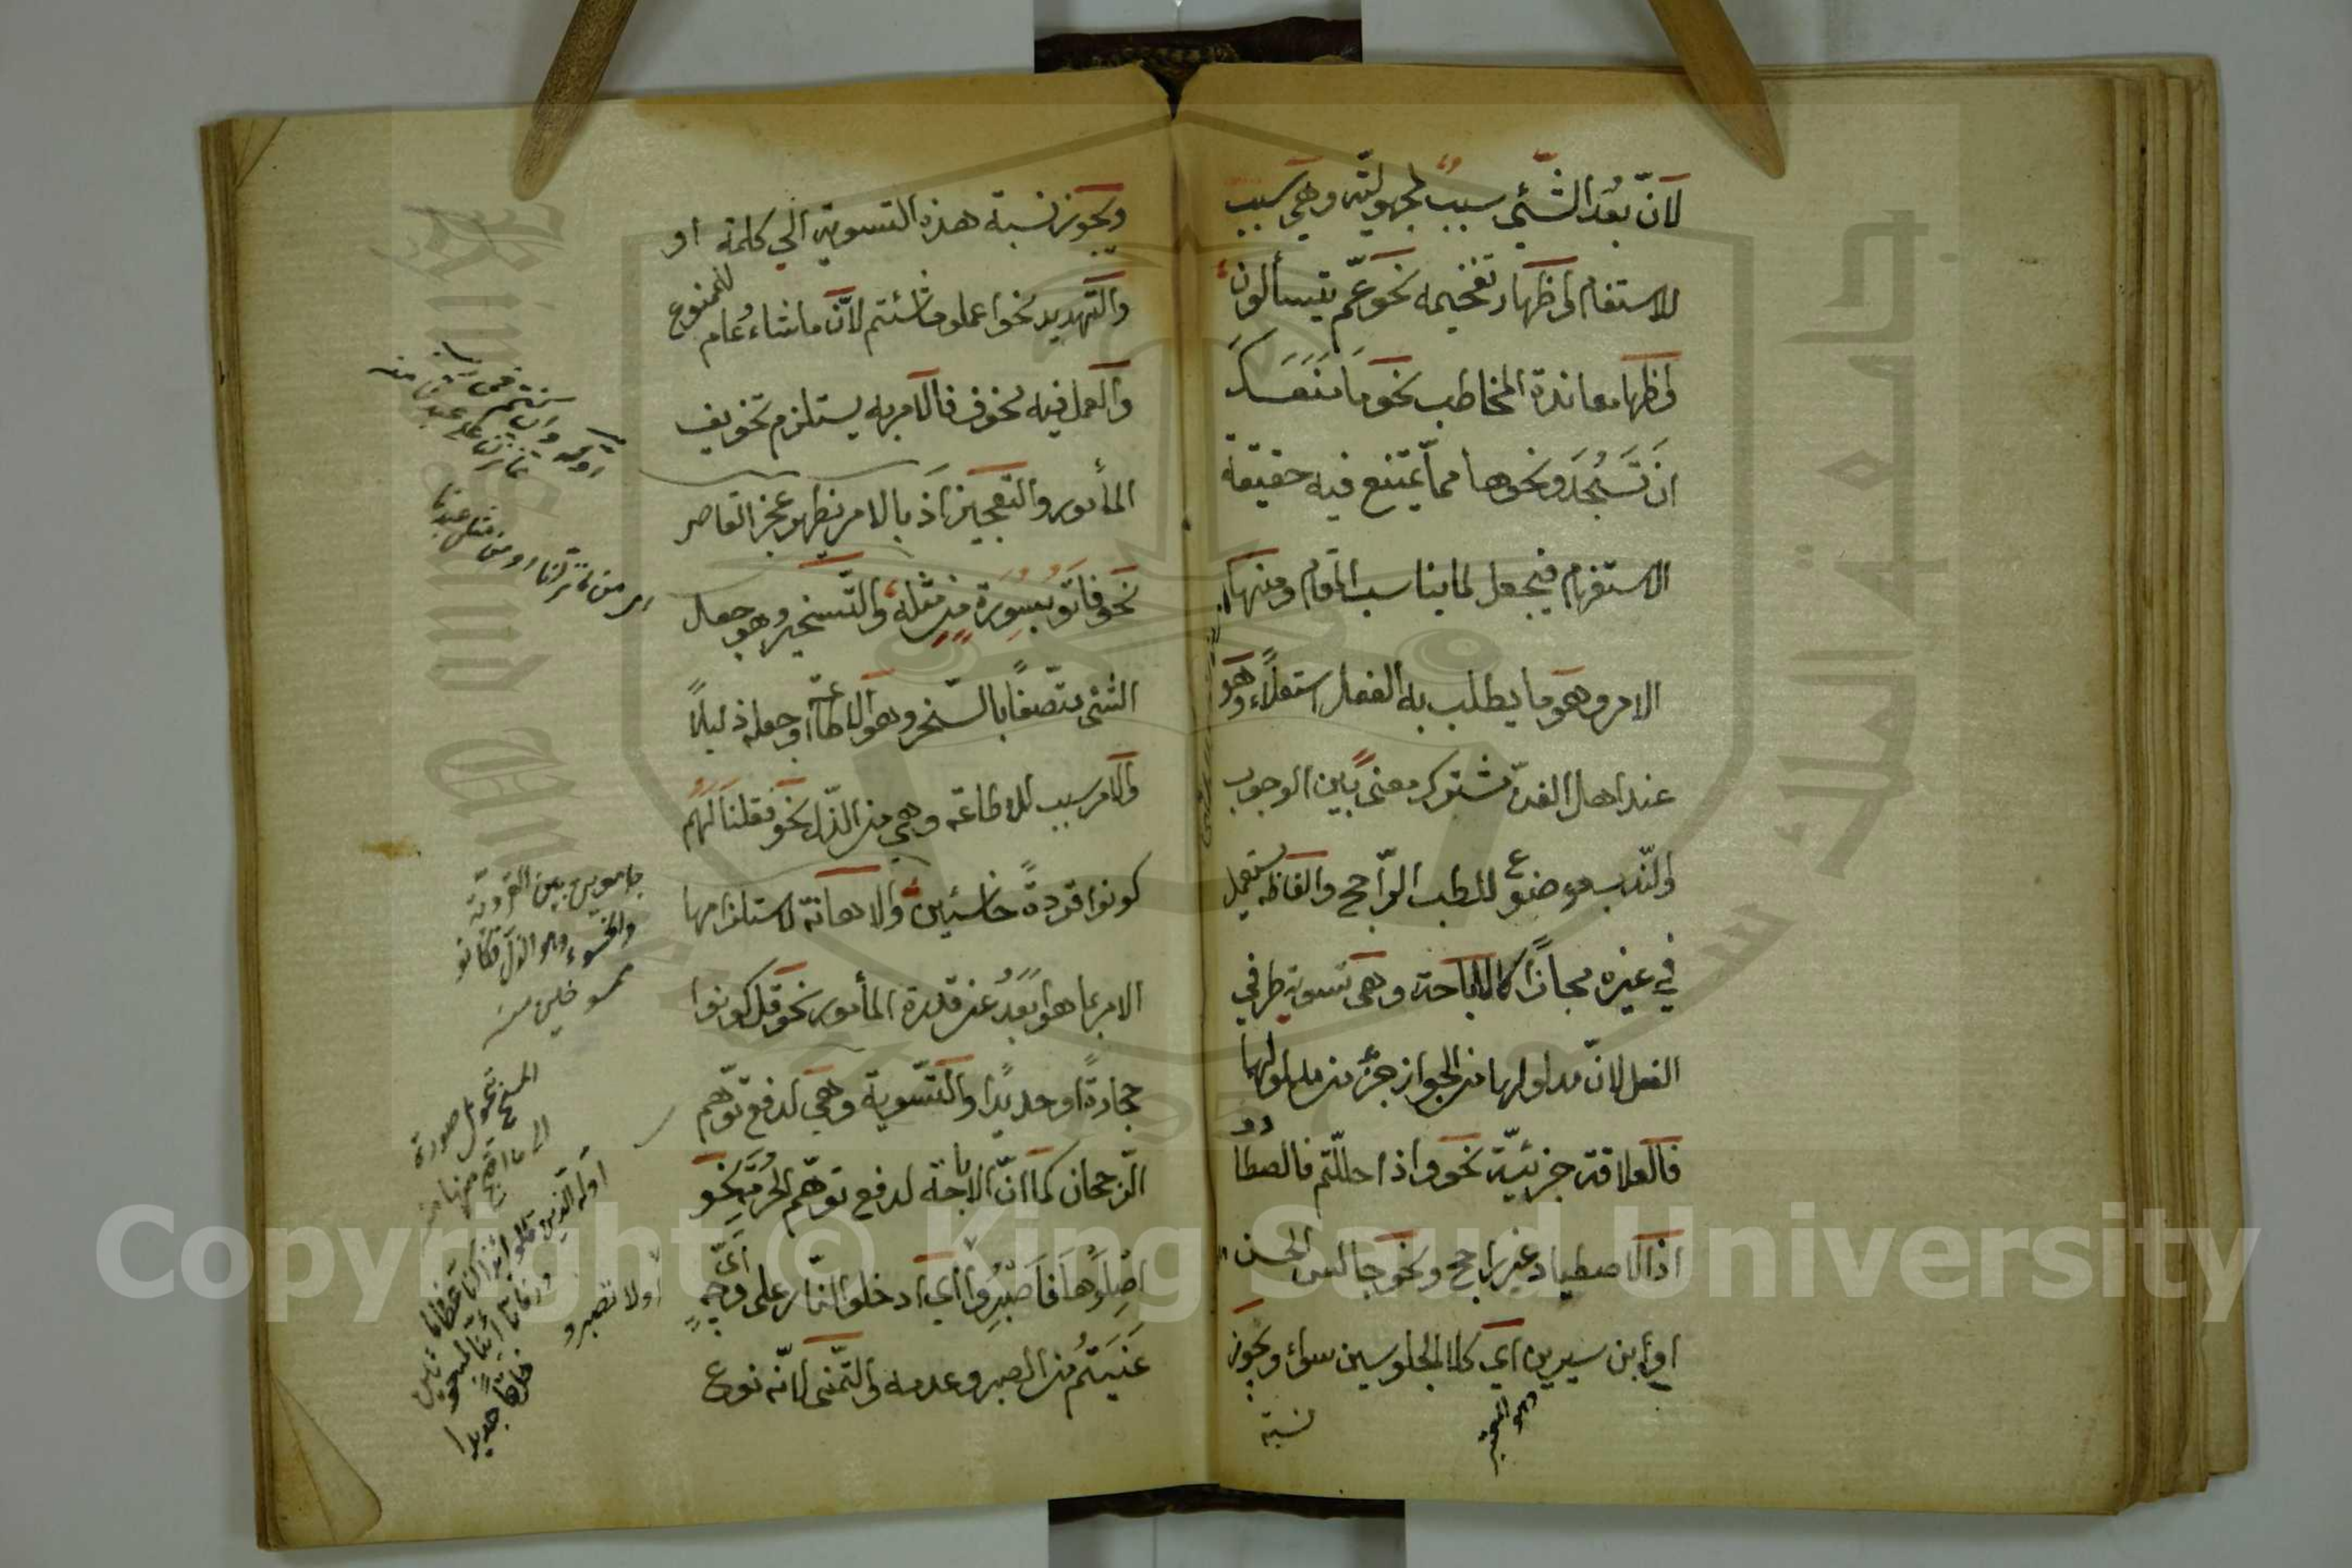 لانّ بُعْدَ الشَّئي سببٌ لمجهوليّته وهي سبب
للاستفهام واظهار تفخيمه نحو عمّ يتسألون
واظهار معاندة المخاطب نحو مَا مَنَعَكَ
اَنْ تَسْجُدَ ونحوها ممّا يمتنع فيه حقيقة
الاستفهام فيجعل لما يناسب المقام ومنها
الامر وهو ما يطلب به الفعل استعلاءً وهو
عند اهل الفنّ مشترك معنىً بين الوجوب
والنّدب موضوع للطلب الرّاجح والفاظه يستعمل
في غيره مجازًا كالاباحة وهي تسوية طرفي
الفعل لانّ مدلولها من الجواز جزء من مدلولها
فالعلاقة جزئيّة نحو واذا حللتم فاصطادوا
اذ الاصطياد غير راجح ونحو جالس الحسن
او ابن سيرين اي كلا الجلوسين سواء ويجوز
نسبة
ويجوز نسبة هذه التسوية الي كلمة او
والتهديد نحو اعملو ما شئتم لانّ ما شاء عام للممنوع
والعمل فيه مخوف فالامر به يستلزم تخويف
المأمور والتعجيز اذ بالامر يظهر عجز القاصر
نحو فاتو بسورة من مثله والتّسخير وهو جعل
الشّئ متّصفًا بالسّخر وهو الاطاعة او جعله ذليلًا
والامر سبب للاطاعة وهي من الذّل نحو فقلنا لهم
كونوا قردةً خاسئين والاهانة لاستلزامها
الامر بما هو ابعد عن قدرة المأمور نحو قل كونوا
حجارةً او حديدًا والتّسوية وهي لدفع توهّم
الرّجحان كما انّ الاباحة لدفع توهّم الحرمة نحو
اصلوها فاصبروا اي ادخلوا النّار على ايّ وجهٍ
عنيتم من الصبر وعدمه والتّمنى لانّه نوع
اوله وان كنتم في ريب
مما نزلنا على عبدنا منه
جامعين بين القردة
والخسوء وهو الذل
المسخ تحويل صورة
الى ما اقبح منها منه
أولا تصبرو
خلقًا جديدا
Copyright © King Saud University